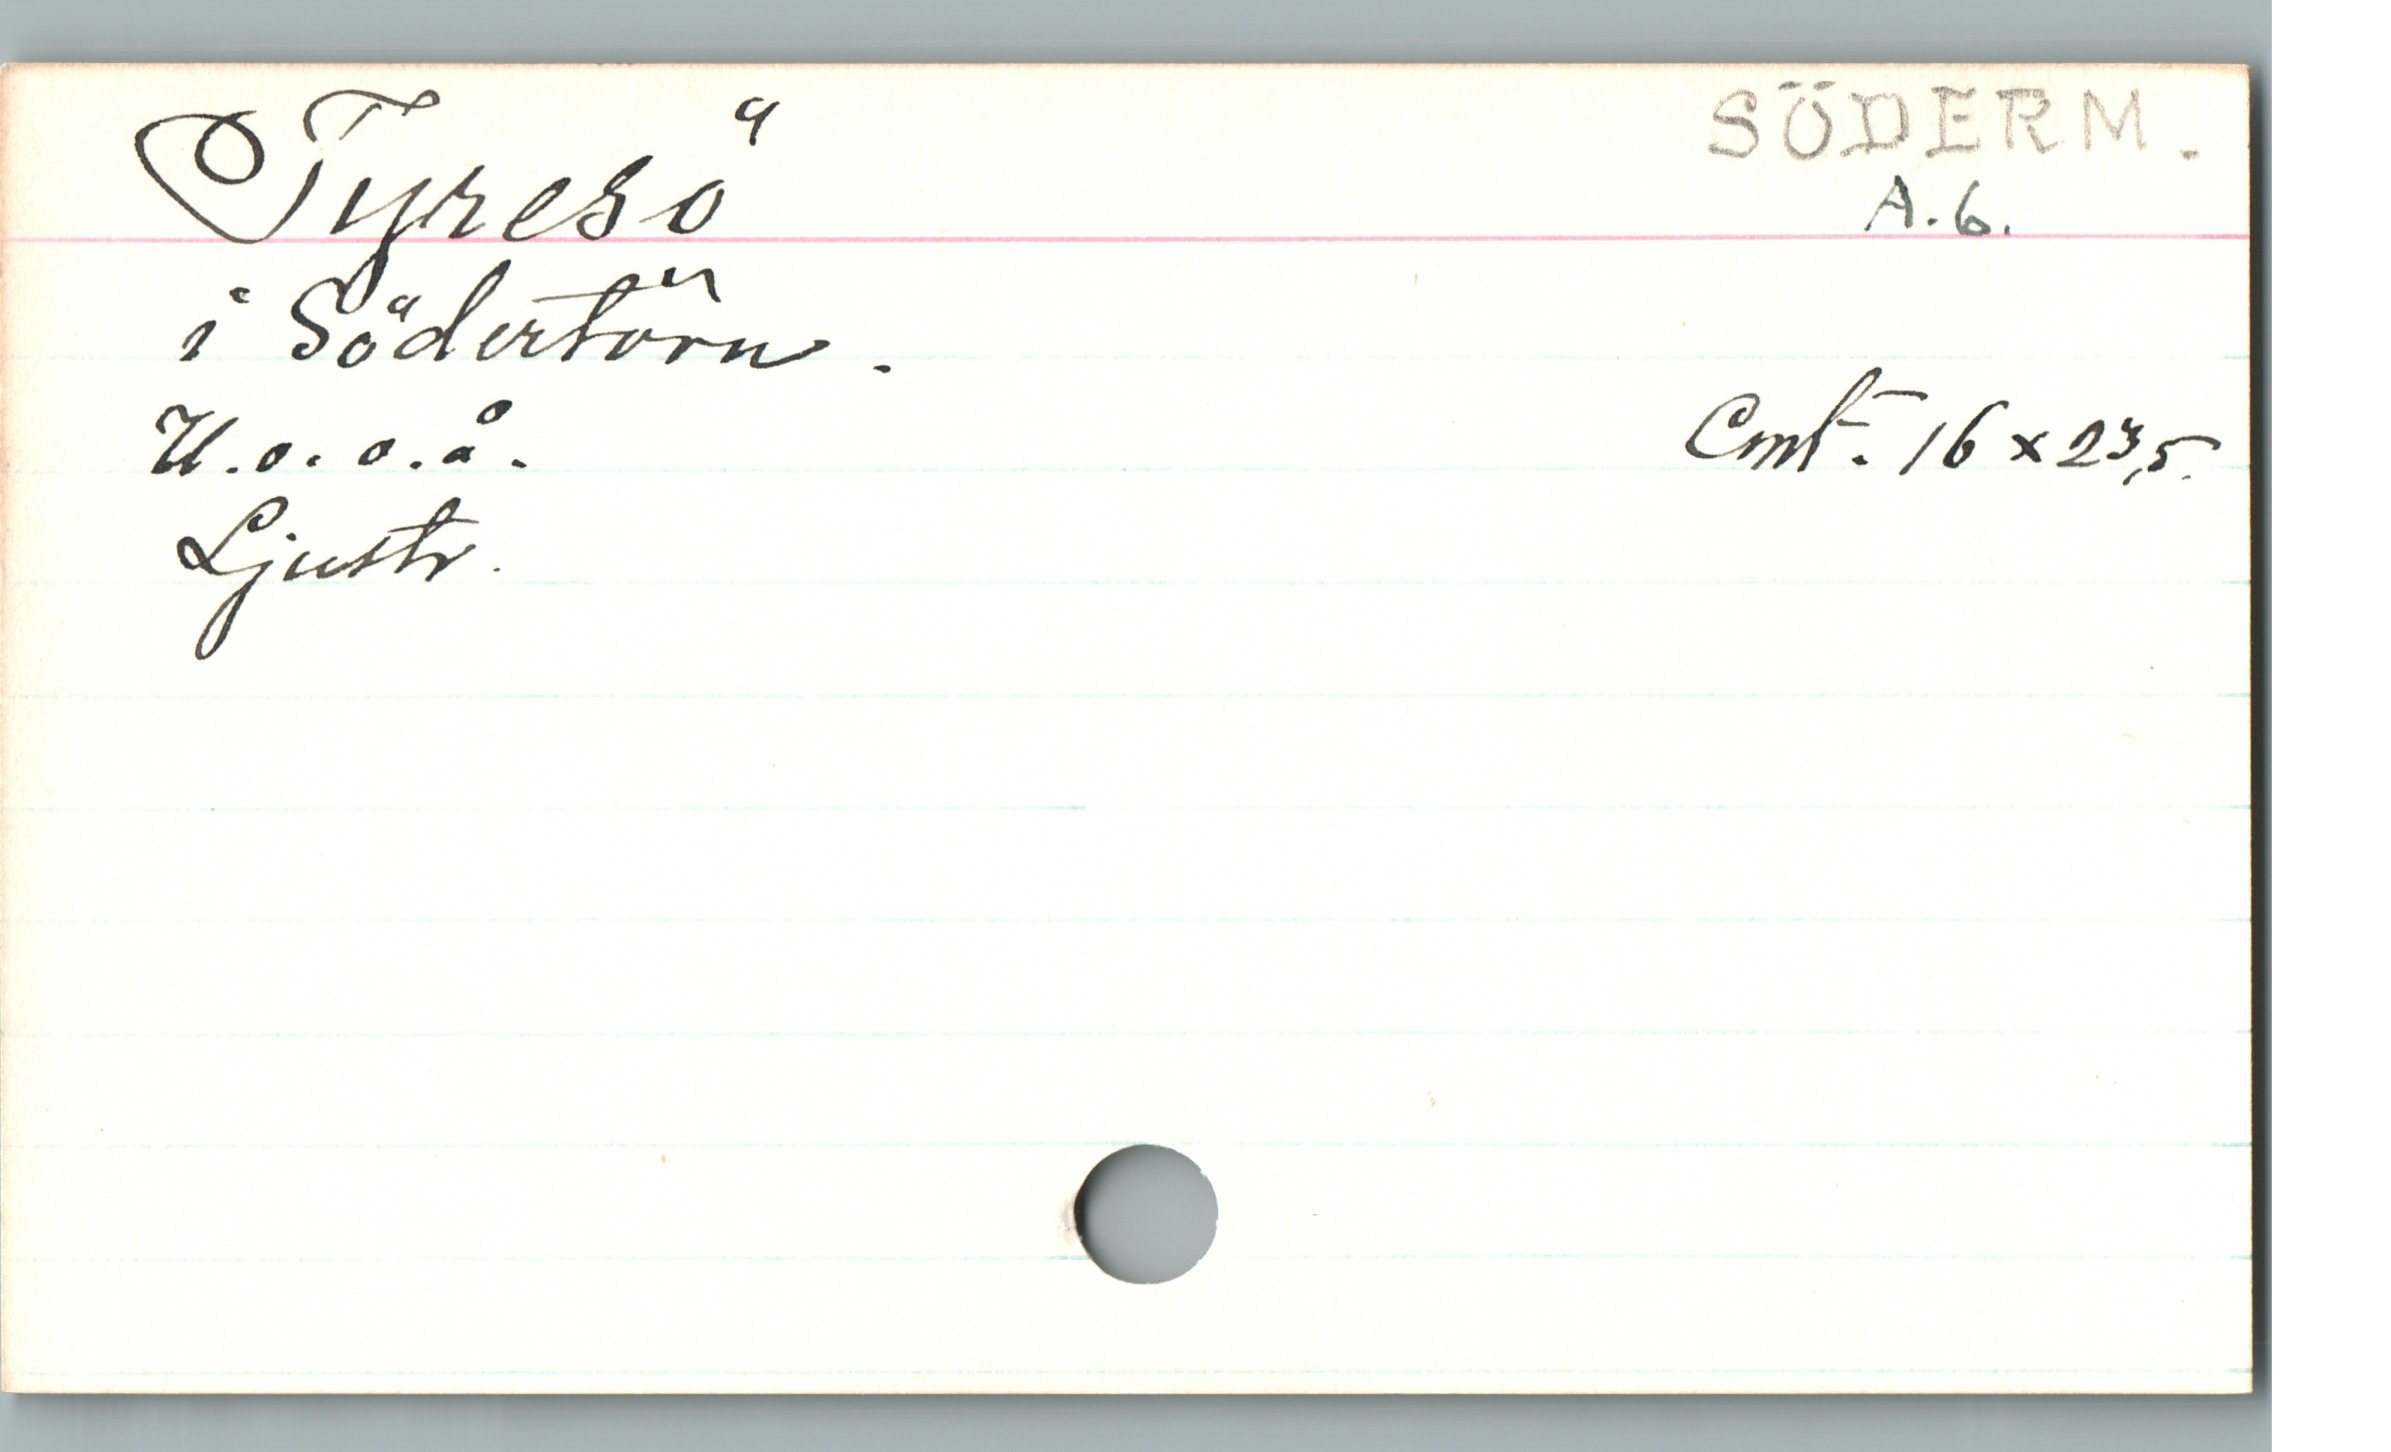 Tyresö
SÖDERM.
A.6.
i Södertörn.
U.o.o.å.
Cmt. 16 x 23,5.
Ljustr.